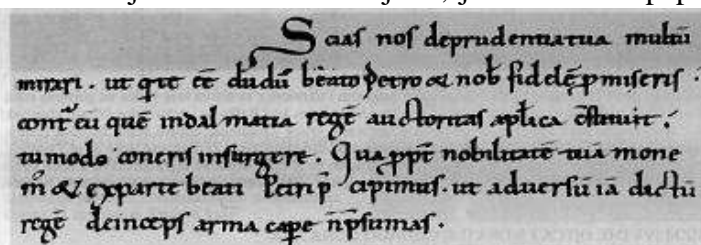 Scias nos deprudentia tua multū
mirari. ut que ēē dudū beato petro & nob fidelē pmiseris.
contͣ eū quē indalmatia regē auctoritas aplica cstituit;
tumodo coneris insurgere. Qua ppt nobilitatē tuā mone
m & exparte beati Petri p cipimus. ut adversū iā dictū
regē deinceps arma cape n psumas.